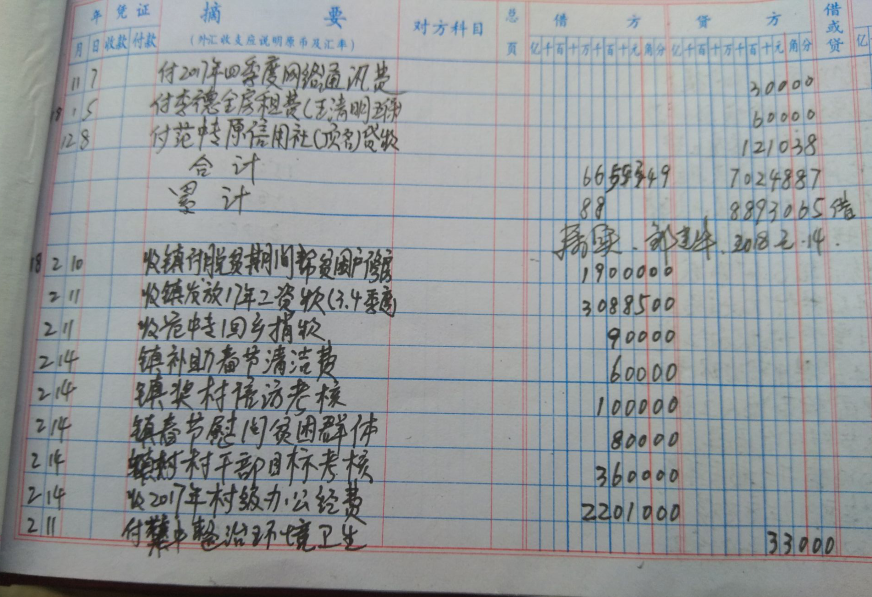 年 凭证 摘 要 对方科目 总页 借方 贷方 借或贷
月 日 收款 付款 (外汇收支应说明原币及汇率) 亿千百十万千百十元角分 亿千百十万千百十元角分 亿
11 7 付2017年四季度网络通讯费 30000
18 1 5 付李德全房租费(王清明 60000
12 8 付范中专原信用社(顶名)贷款 121038
合计 7024887
累计 88 8893065 借
2018元.14.
18 2 10 收镇 脱贫期间帮贫困户 1900000
2 11 收镇发放17年工资款(3.4季度) 3088500
2 11 收范中专回乡捐款 90000
2 14 镇补助春节清洁费 60000
2 14 镇奖村信访考核 100000
2 14 镇春节慰问贫困群体 80000
2 14 镇 村干部目标考核 360000
2 14 收2017年村级办公经费 2201000
2 11 付 中整治环境卫生 33000